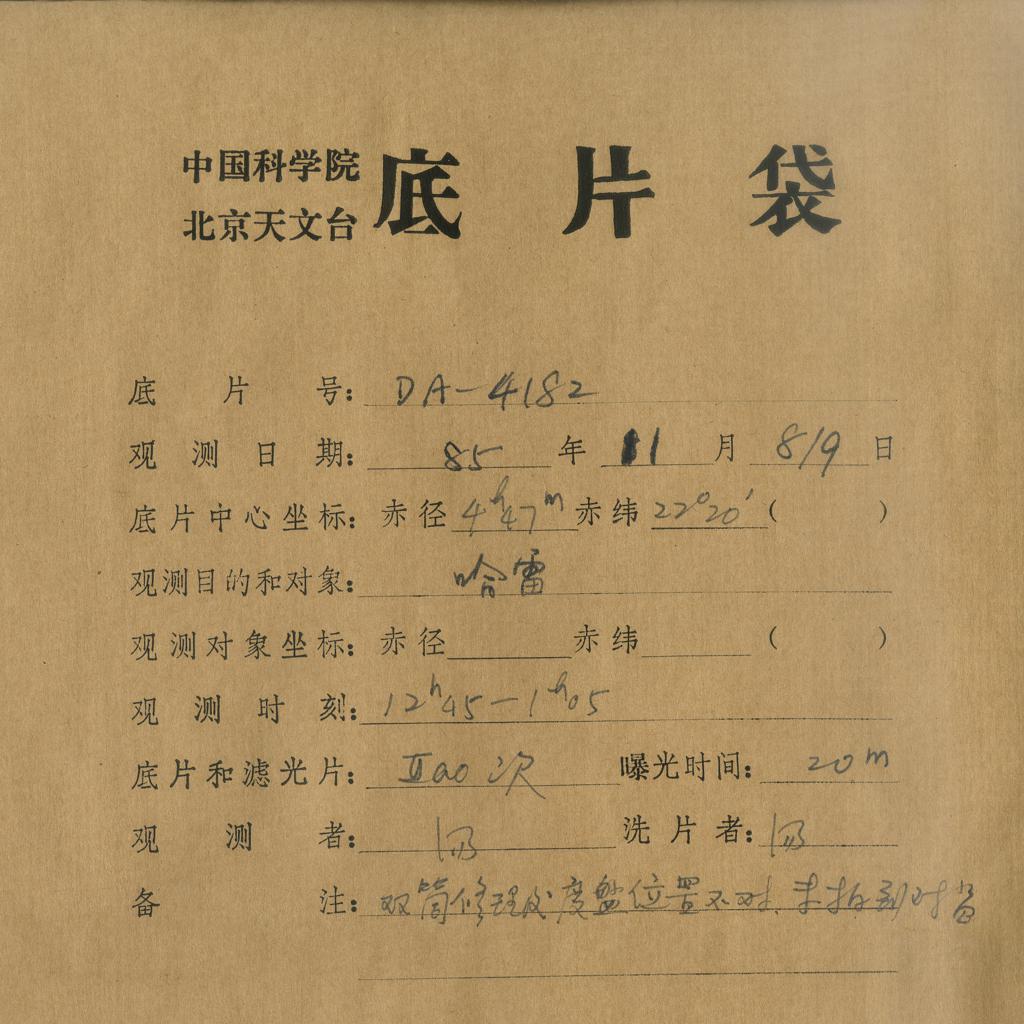 中国科学院
北京天文台 底片袋
底片号: DA-4182
观测日期: 85年11月8/9日
底片中心坐标: 赤径 4h47m 赤纬 22°20′ ( )
观测目的和对象: 哈雷
观测对象坐标: 赤径 赤纬 ( )
观测时刻: 12h45-1h05
底片和滤光片: IIao 次 曝光时间: 20m
观测者: 洗片者:
备注: 双筒修理后度盘位置不对、未拍到对